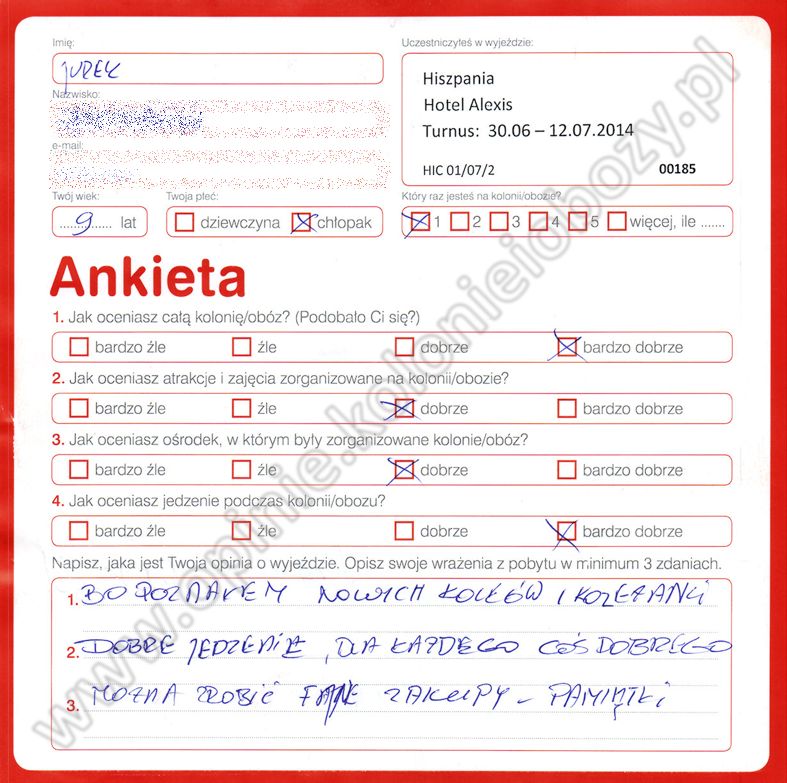 Imię:
Uczestniczyłeś w wyjeździe:
JUREK
Hiszpania
Hotel Alexis
Turnus: 30.06 – 12.07.2014
HIC 01/07/2 00185
Nazwisko:
e-mail:
Twój wiek: Twoja płeć: Który raz jesteś na kolonii/obozie?
9 lat dziewczyna chłopak 1 2 3 4 5 więcej, ile .......
Ankieta
1. Jak oceniasz całą kolonię/obóz? (Podobało Ci się?)
bardzo źle źle dobrze bardzo dobrze
2. Jak oceniasz atrakcje i zajęcia zorganizowane na kolonii/obozie?
bardzo źle źle dobrze bardzo dobrze
3. Jak oceniasz ośrodek, w którym były zorganizowane kolonie/obóz?
bardzo źle źle dobrze bardzo dobrze
4. Jak oceniasz jedzenie podczas kolonii/obozu?
bardzo źle źle dobrze bardzo dobrze
Napisz, jaka jest Twoja opinia o wyjeździe. Opisz swoje wrażenia z pobytu w minimum 3 zdaniach.
1. BO POZNAŁEM NOWYCH KOLEGÓW I KOLEŻANKI
2. DOBRE JEDZENIE, DLA KAŻDEGO COŚ DOBREGO
3. MOŻNA ZROBIĆ FAJNE ZAKUPY - PAMIĄTKI
www.opinie.kolonieiobozy.pl